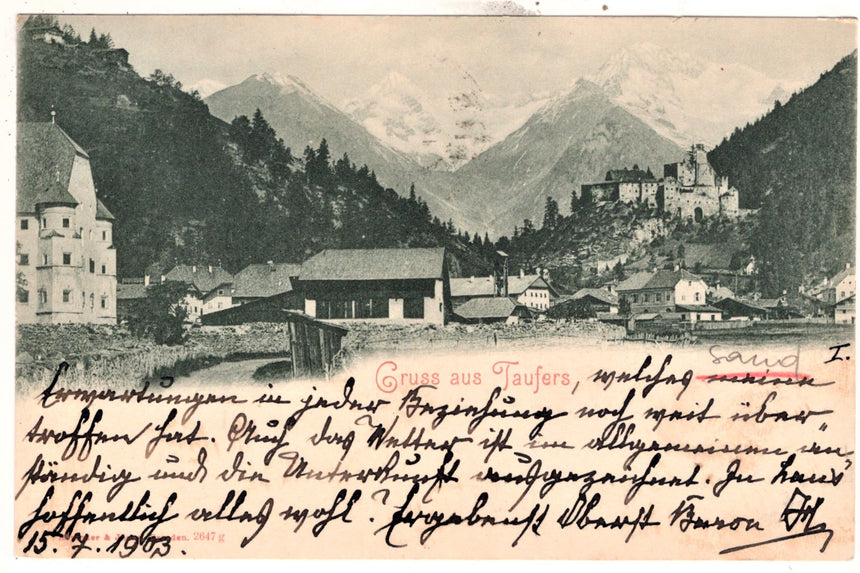 Sand I.
Gruss aus Taufers, welches meine
Erwartungen in jeder Beziehung noch weit über
troffen hat. Auch das Wetter ist im allgemeinen an
ständig und die Unterkunft ausgezeichnet. Zu Haus
hoffentlich alles wohl? Ergebenst Oberst Baron
15.7.1903. 2647 g